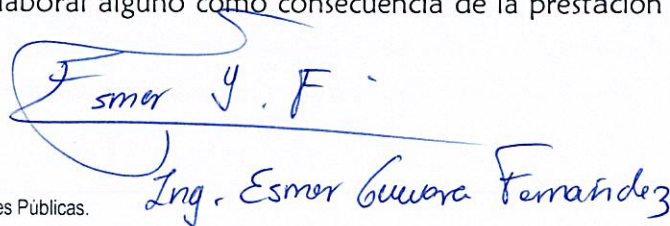 laboral alguno como consecuencia de la prestación
Esmer Y. F
Ing. Esmer Guevara Fernández
es Públicas.